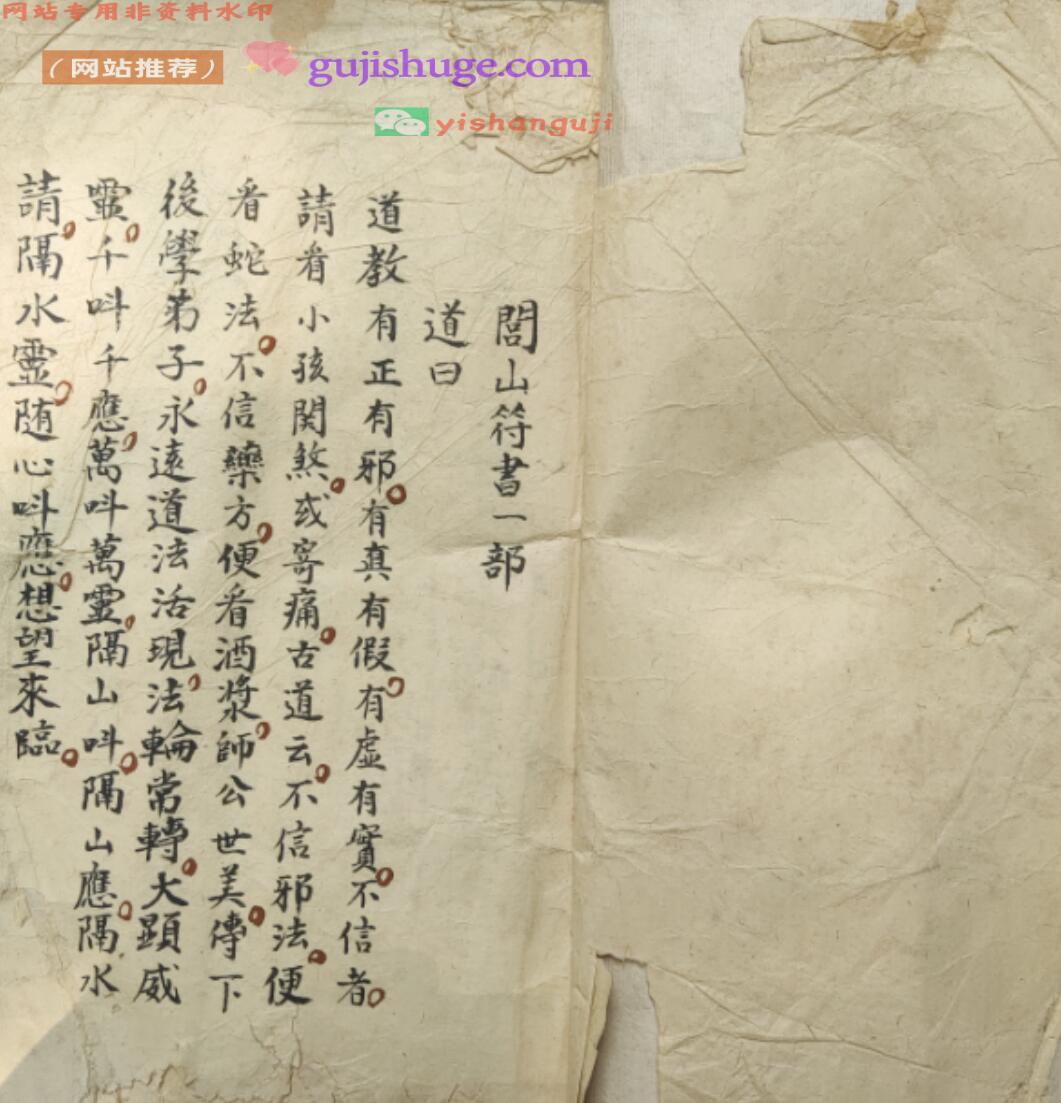 网站专用非资料水印
(网站推荐)
gujishuge.com
yishanguji
閭山符書一部
道曰
道教有正有邪有真有假有虛有實不信者
請看小孩関煞或寄痛古道云不信邪法便
看蛇法不信藥方便看酒漿師公世美傳下
後學弟子永遠道法活現法輪常轉大顕威
靈千呌千應萬呌萬靈隔山呌隔山應隔水
請隔水靈随心呌應想望來臨